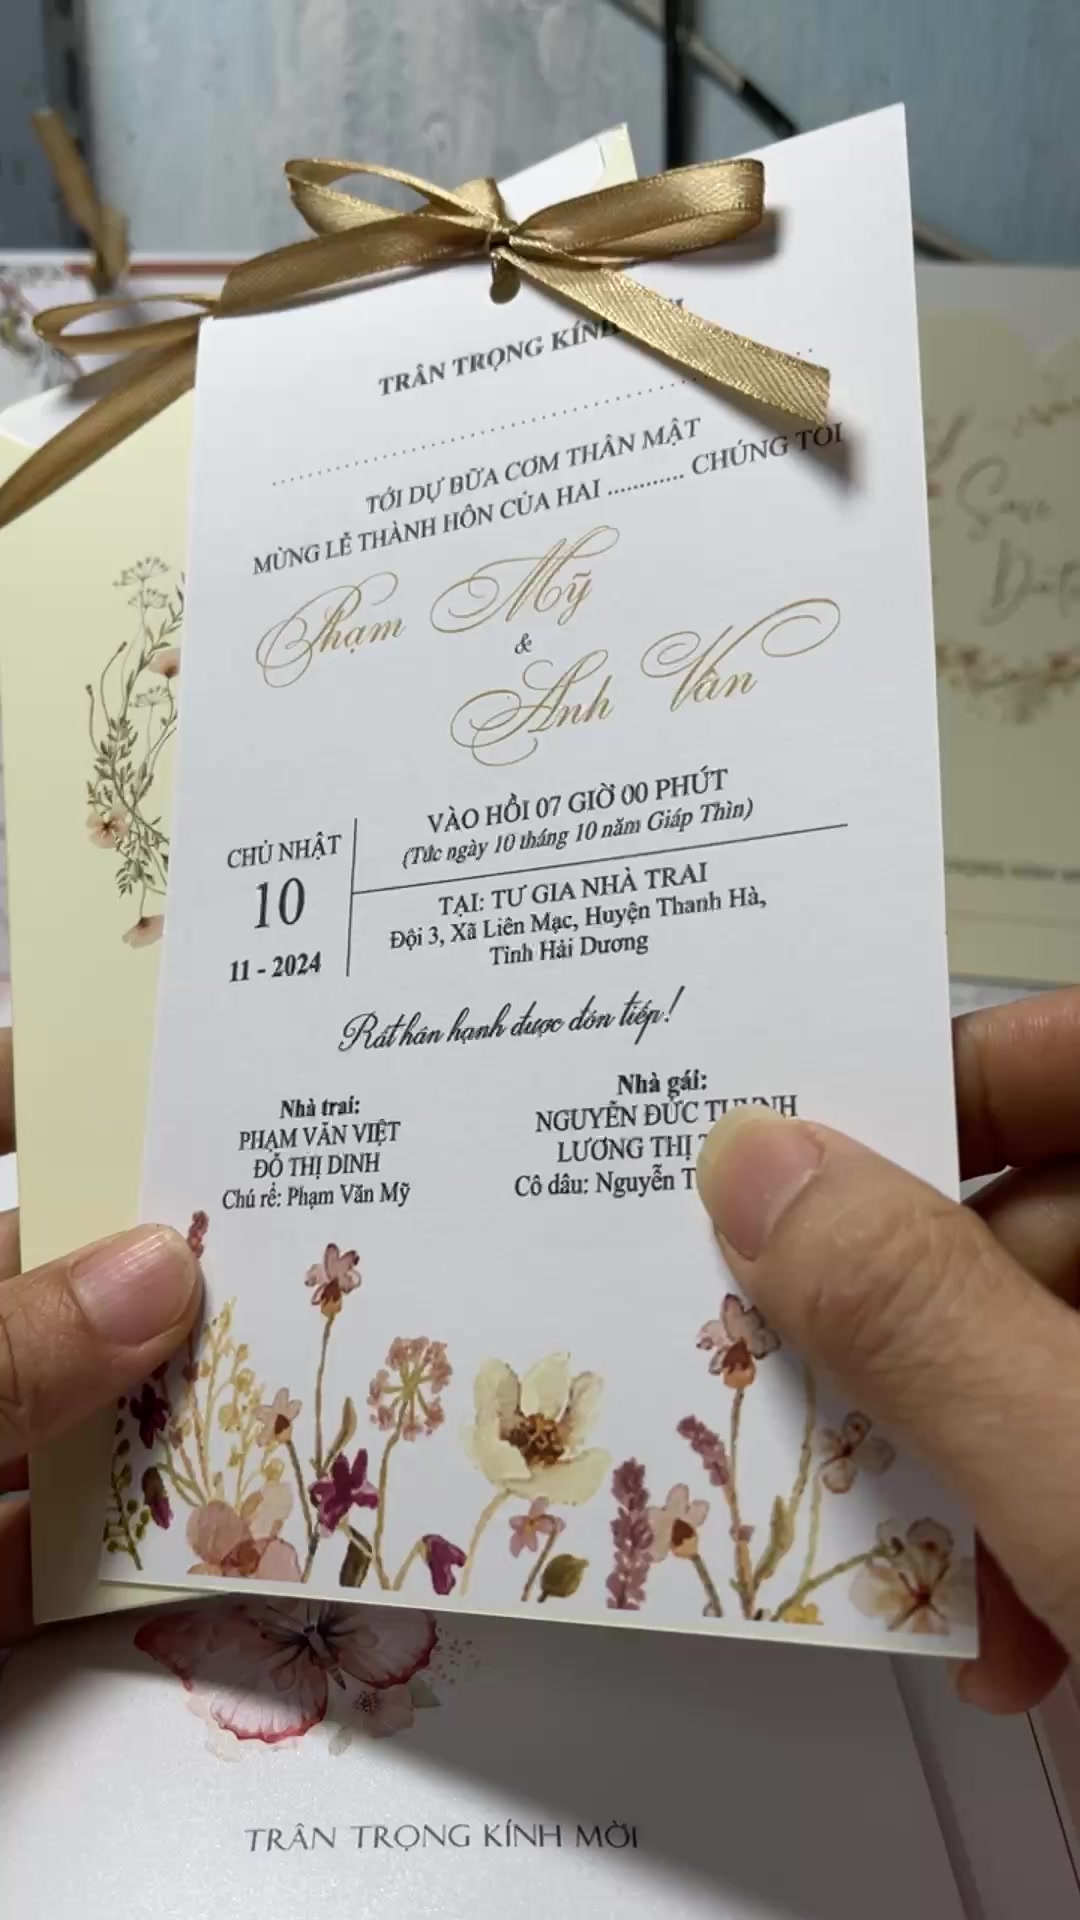 TRÂN TRỌNG KÍNH
TỚI DỰ BỮA CƠM THÂN MẬT
MỪNG LỄ THÀNH HÔN CỦA HAI ............ CHÚNG TÔI
Phạm Mỹ
&
Anh Vân
CHỦ NHẬT
10
11 - 2024
VÀO HỒI 07 GIỜ 00 PHÚT
(Tức ngày 10 tháng 10 năm Giáp Thìn)
TẠI: TƯ GIA NHÀ TRAI
Đội 3, Xã Liên Mạc, Huyện Thanh Hà,
Tỉnh Hải Dương
Rất hân hạnh được đón tiếp!
Nhà trai:
PHẠM VĂN VIỆT
ĐỖ THỊ DINH
Chú rể: Phạm Văn Mỹ
Nhà gái:
NGUYỄN ĐỨC
LƯƠNG THỊ
Cô dâu: Nguyễn T
Save
Date
TRÂN TRỌNG KÍNH MỜI